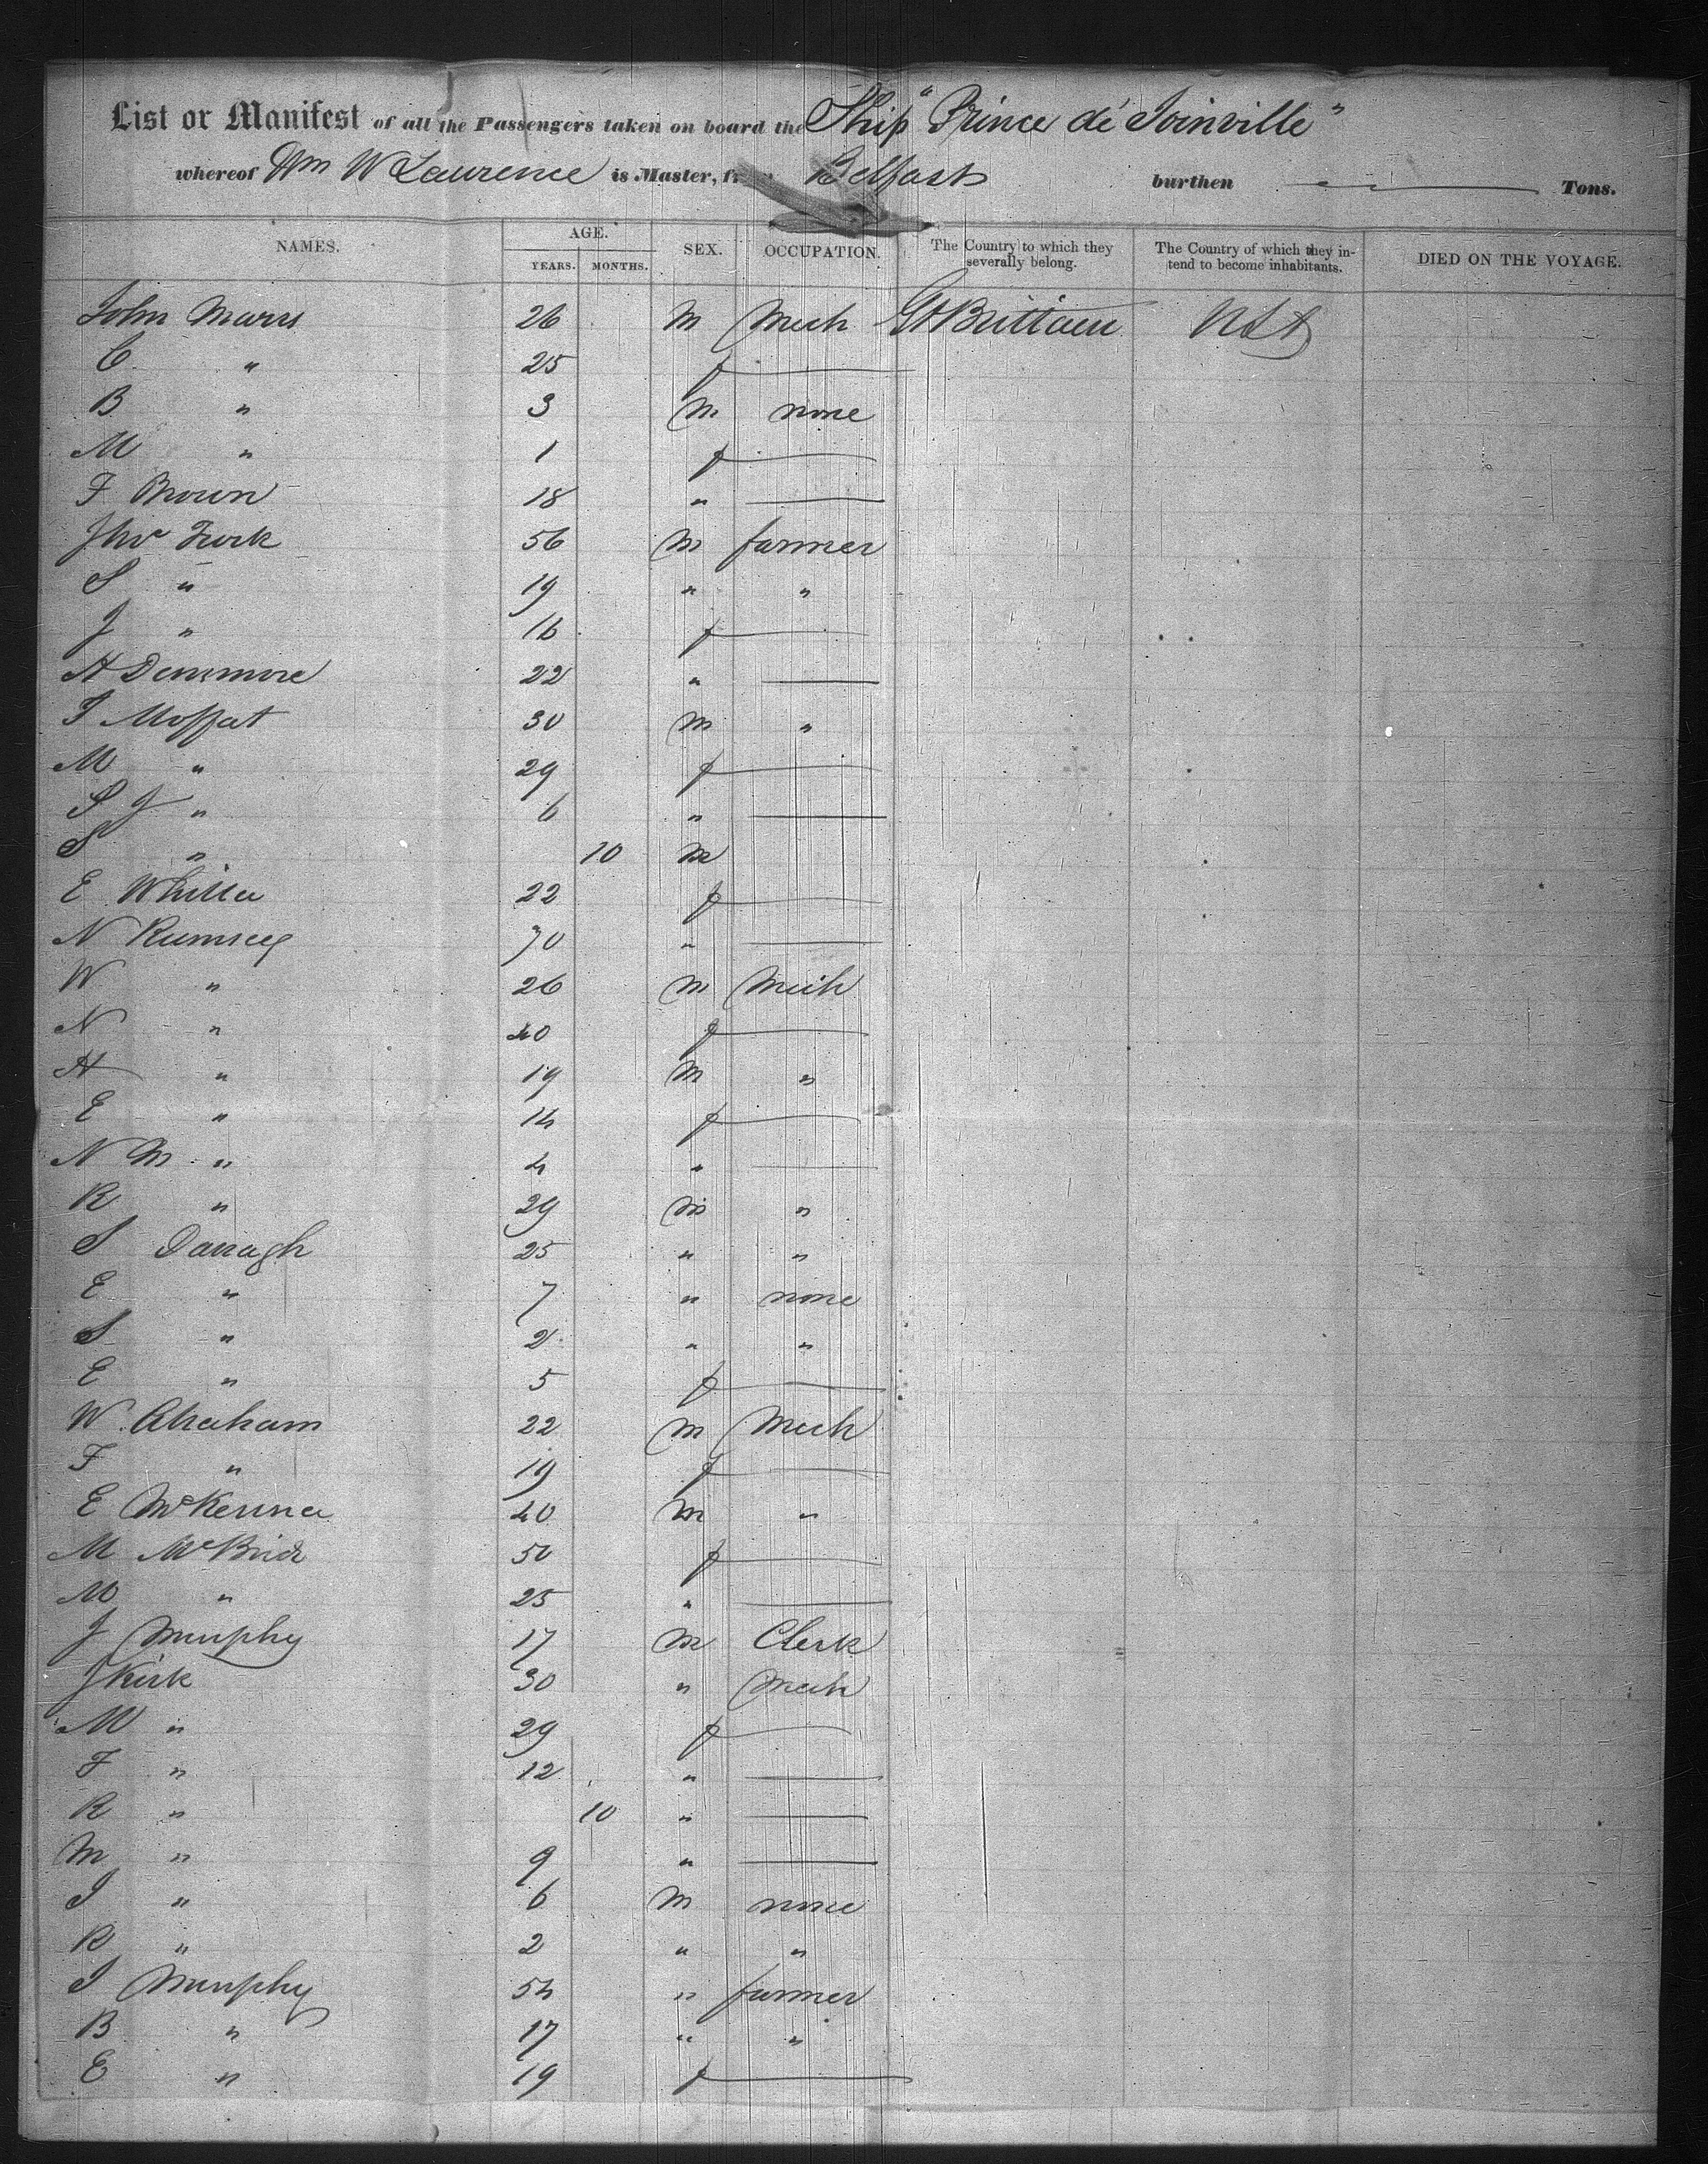 List or Manifest of all the Passengers taken on board the Ship "Prince de Joinville"
whereof Wm W Laurence is Master, from Belfast burthen Tons.
NAMES. AGE. YEARS. MONTHS. SEX. OCCUPATION. The Country to which they severally belong. The Country of which they intend to become inhabitants. DIED ON THE VOYAGE.
John Marrs 26 M Mech Gt Brittain USA
C. " 25 f
B " 3 M none
M " 1 f
F Brown 18 "
Jno Turk 56 M farmer
S " 19 " "
J " 16 f
H Densmore 22 "
T Moffat 30 M "
M " 29 f
S J " 6 "
S " 10 M
E Whilla 22 f
N Rumsey 70 "
W " 26 M Mech
N " 40 f
H " 19 M "
E " 14 f
N M " 4 "
R " 29 M "
S Darragh 25 " "
E " 7 " none
S " 2 " "
E " 5 f
W. Abraham 22 M Mech
F " 19 f
E McKenna 40 M "
M McBride 50 f
M " 25 "
J Murphy 17 M Clerk
J Kirk 30 " Mech
M " 29 f
F " 12 "
R " 10 "
M " 9 "
I " 6 M none
R " 2 " "
I Murphy 54 " farmer
B " 17 " "
E " 19 f